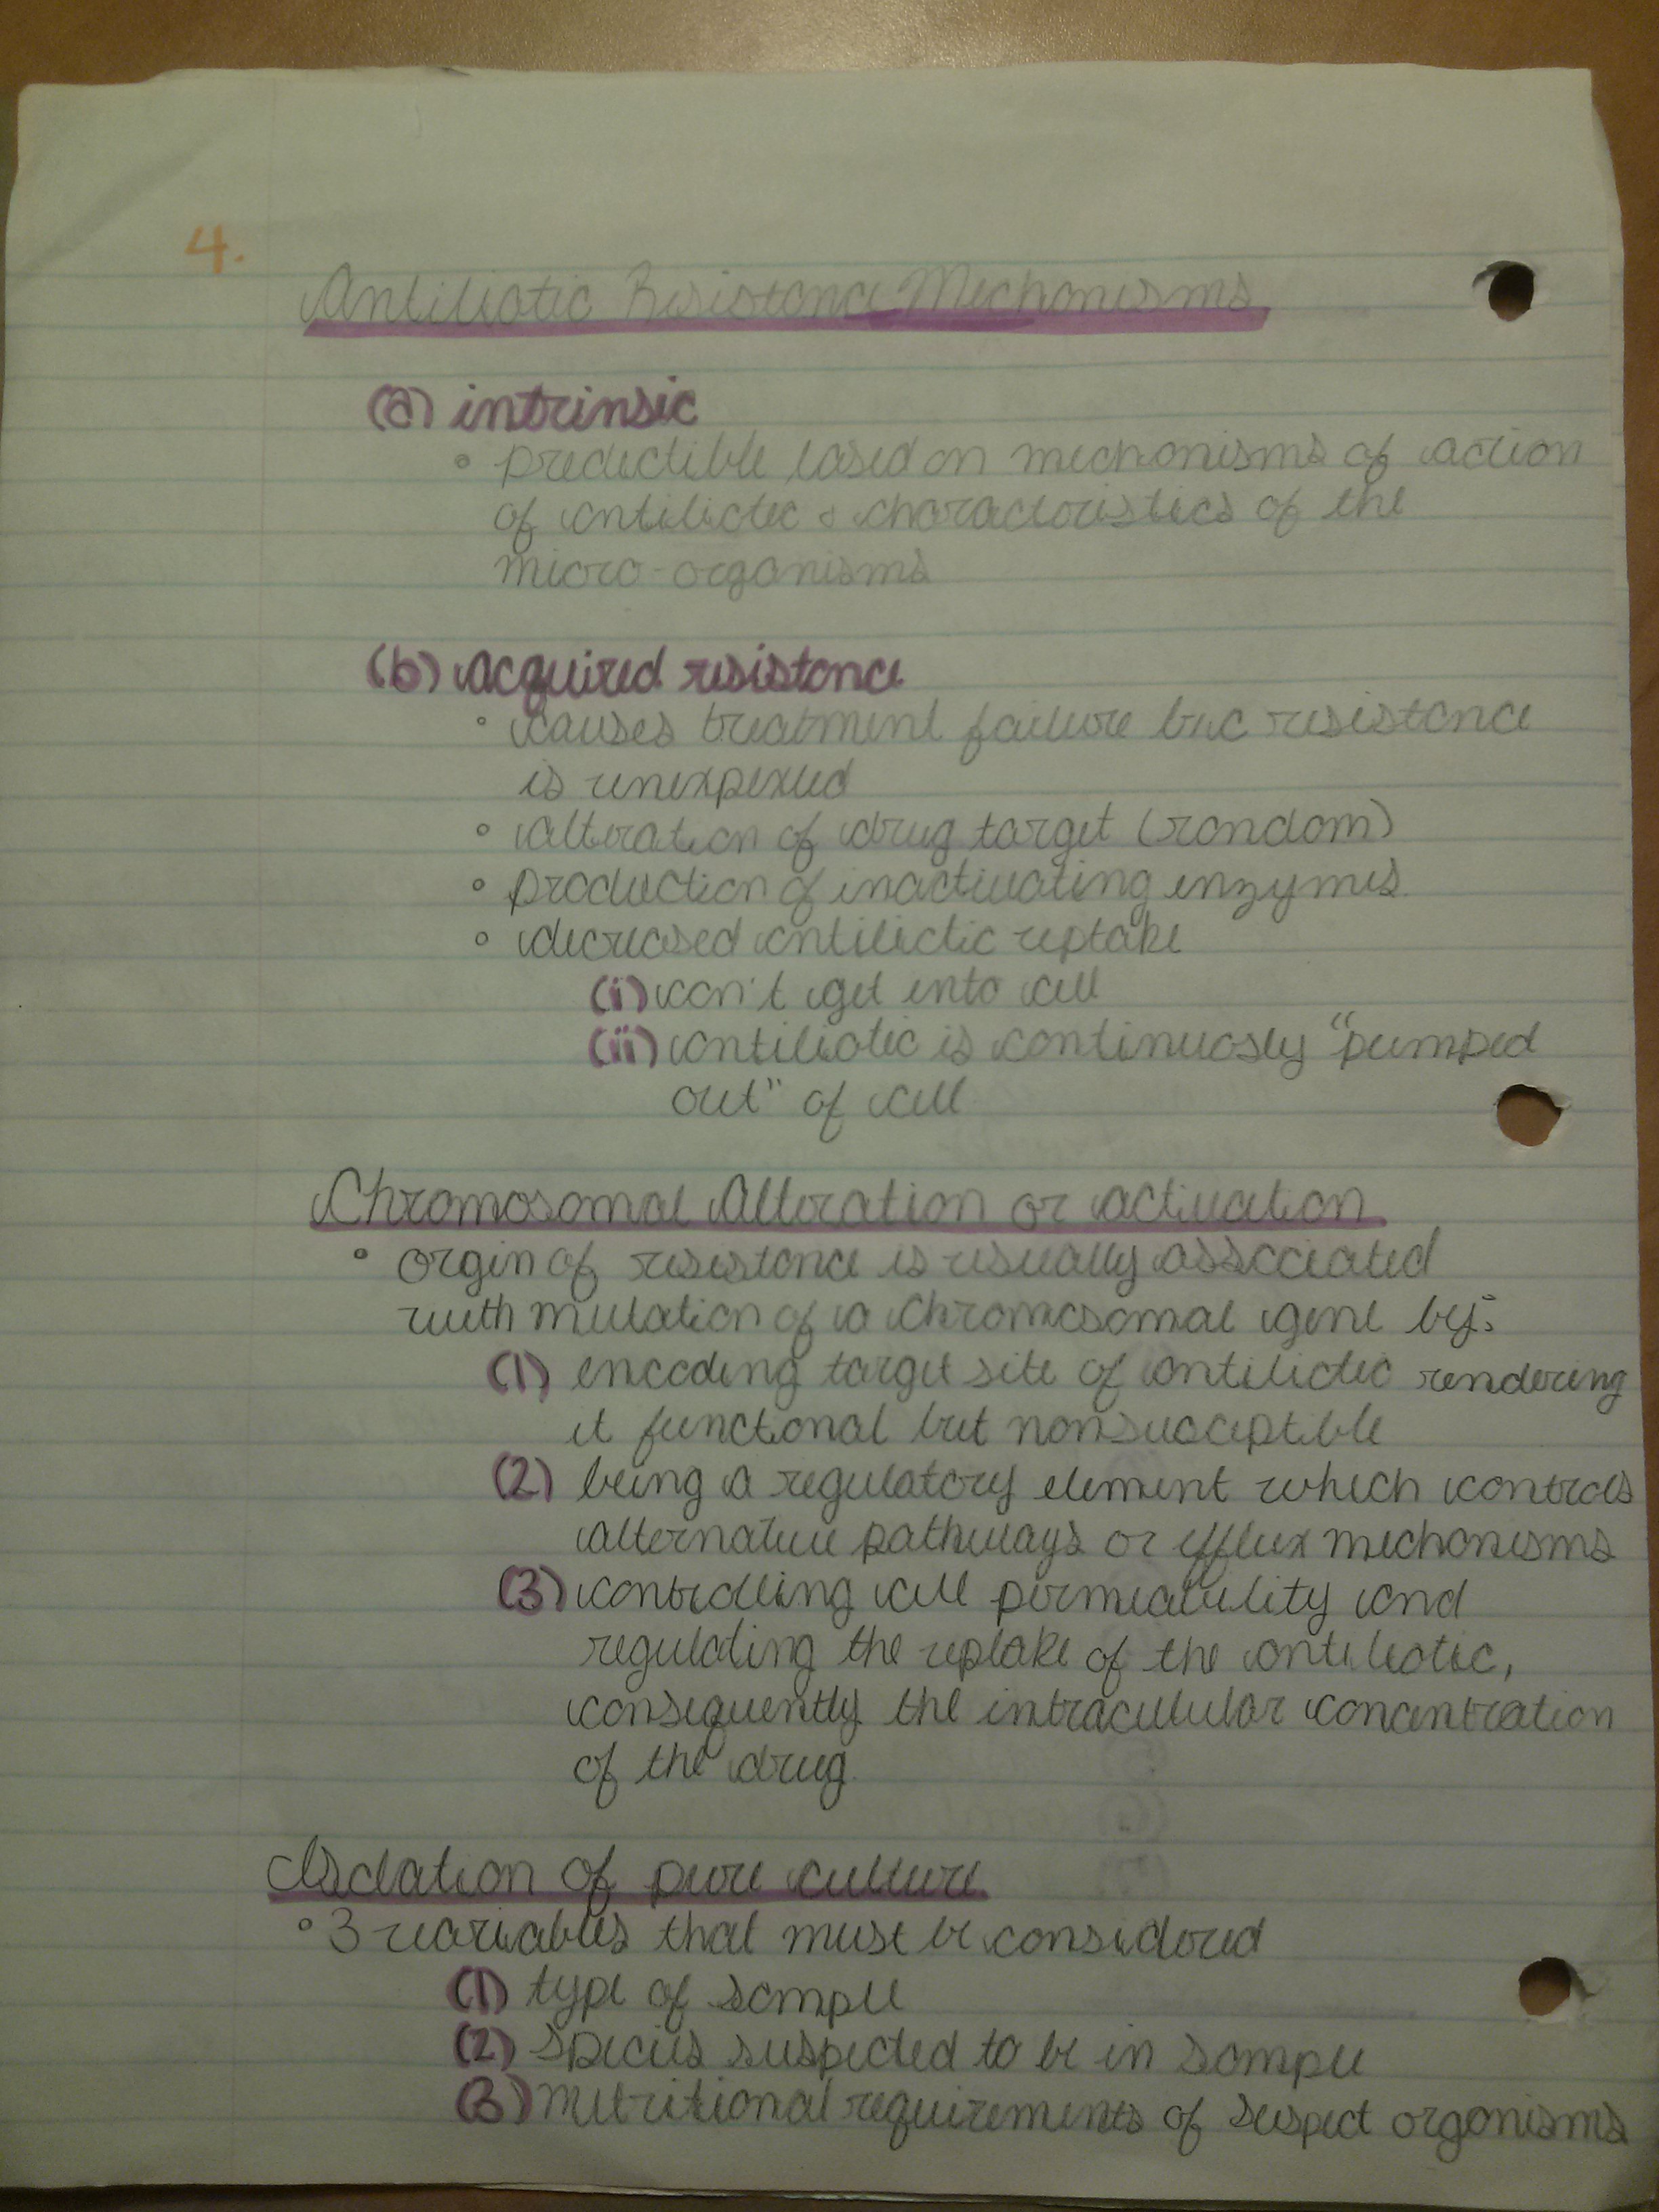 4.
Antibiotic Resistance Mechanisms
(a) intrinsic
• predictible based on mechanisms of action
of antibiotic & characteristics of the
micro-organisms
(b) acquired resistance
• causes treatment failure b/c resistance
is unexpected
• alteration of drug target (random)
• production of inactivating enzymes.
• decreased antibiotic uptake
(i) can't get into cell
(ii) antibiotic is continuosly "pumped
out" of cell
Chromosomal Alteration or activation
• orgin of resistance is usually associated
with mutation of a chromosomal gene by:
(1) encoding target site of antibiotic rendering
it functional but nonsusceptible
(2) being a regulatory element which controls
alternative pathways or efflux mechanisms
(3) controlling cell permeability and
regulating the uptake of the antibiotic,
consequently the intracellular concentration
of the drug.
Isolation of pure culture
• 3 variables that must be considered
(1) type of sample
(2) species suspected to be in sample
(3) nutritional requirements of suspect organisms